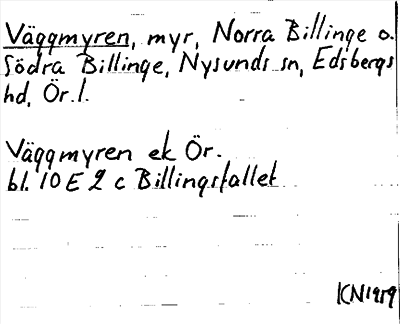 Väggmyren, myr, Norra Billinge o.
Södra Billinge, Nysunds sn, Edsbergs
hd, Ör. l.
Väggmyren ek Ör.
bl. 10 E 2 c Billingsfallet